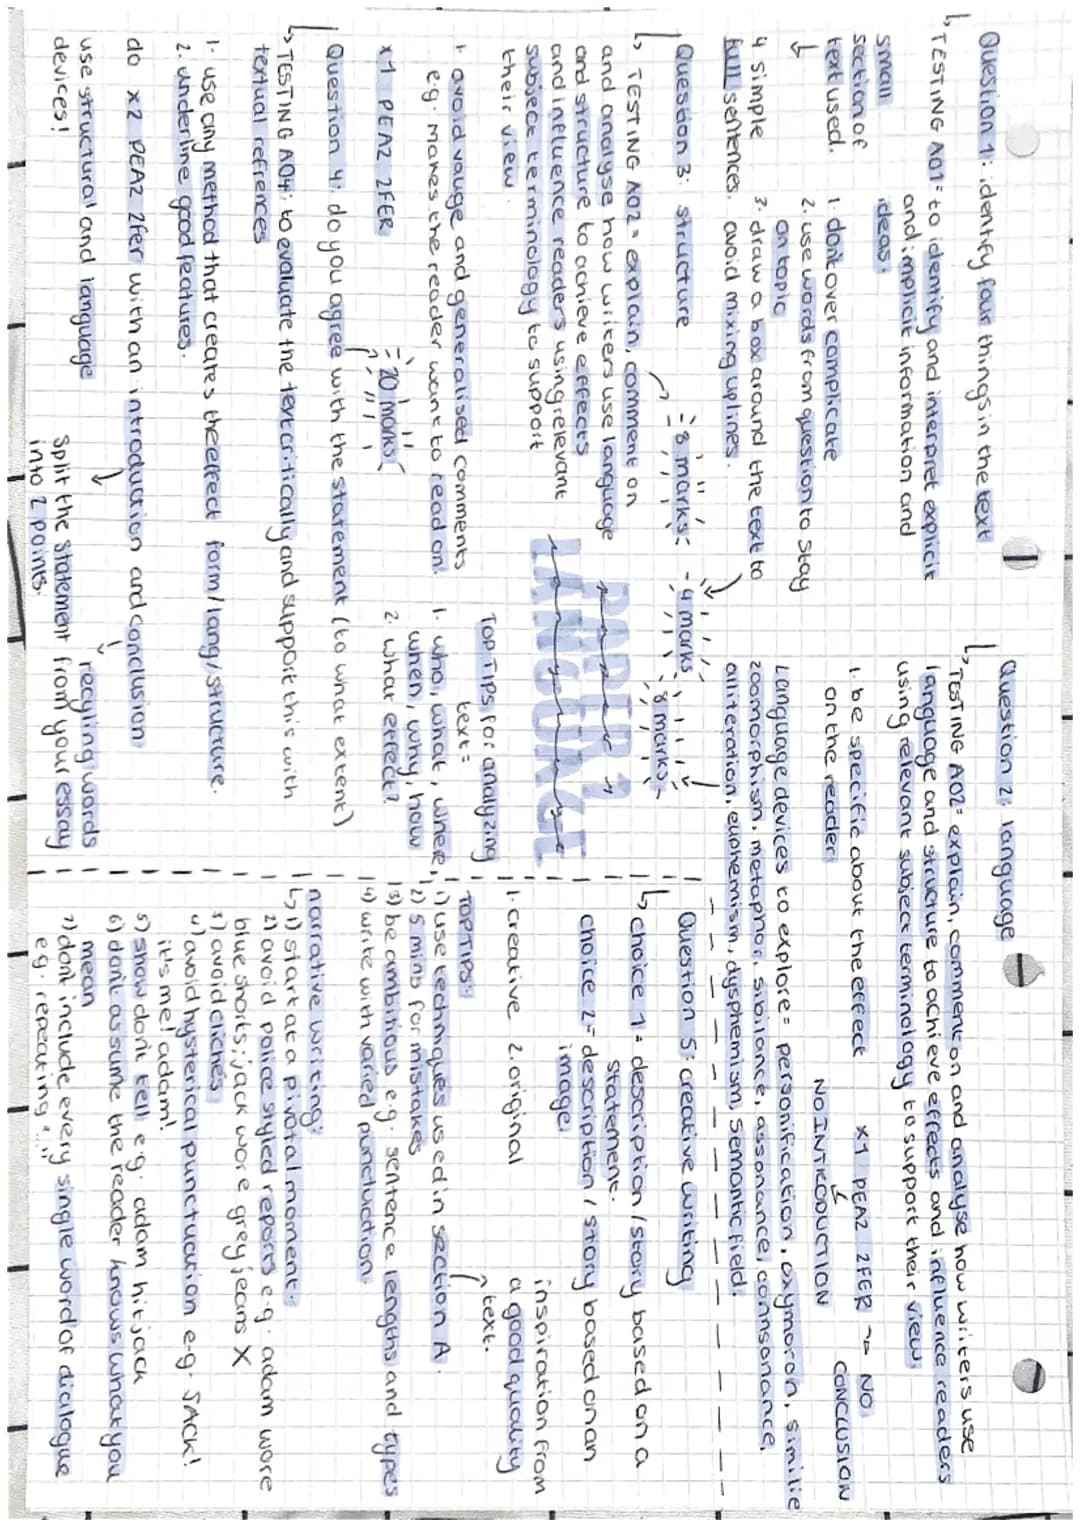 Question 1: identify four things in the text
↳ TESTING AO1 = to identify and interpret explicit
and implicit information and
ideas.
small
section of
text used.
↓
4 simple
full sentences.
1. don't over complicate
2. use words from question to stay
on topic
3. draw a box around the text to
avoid mixing up lines.
- 4 marks
Question 3: structure
8 marks
↳ TESTING AO2 = explain, comment on
and analyse how writers use language
and structure to achieve effects
and influence readers using relevant
subject terminology to support
their view.
1. avoid vauge and generalised comments
eg. makes the reader want to read on.
x1 PEA2 2FER
PAPER 1
paper 1
LANGUAGE
language
TOP TIPS for analyzing
text =
1. who, what, where,
when, why, how
2. what effect?
Question 4: do you agree with the statement (to what extent)
20 marks
↳ TESTING AO4: to evaluate the text critically and support this with
textual refrences
1. use any method that creates the effect form/lang/structure.
2. underline good features.
do x2 PEA2 2fer with an introduction and conclusion
use structural and language
devices!
split the statement
into 2 points.
recyling words
from your essay
Question 2: language
8 marks
↳ TESTING AO2 = explain, comment on and analyse how writers use
language and structure to achieve effects and influence readers
using relevant subject terminology to support their view.
1. be specific about the effect
on the reader
x1 PEA2 2FER → NO
CONCLUSION
NO INTRODUCTION
Language devices to explore = personification, oxymoron, similie
zoomorphism, metaphor, sibilance, assonance, connsonance,
alliteration, euphemism, dysphemism, semantic field.
Question 5: creative writing
↳ choice 1 = description / story based on a
statement.
choice 2 = description / story based on an
image.
1. creative 2. original
inspiration from
a good quality
text.
TOP TIPS:
1) use techniques used in section A.
2) 5 mins for mistakes
3) be ambitious eg. sentence lengths and types
4) write with varied punctuation.
narrative writing:
↳ 1) start at a pivotal moment.
2) avoid police styled reports e.g. adam wore
blue shorts; jack wore grey jeans X
3) avoid cliches
4) avoid hysterical punctuation e.g. JACK!
it's me! adam!
5) show don't tell e.g. adam hit jack
6) don't assume the reader knows what you
mean
7) don't include every single word of dialogue
e.g. repeating "..."